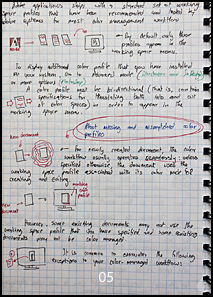 Adobe applications ships with a standard set of working
space profiles that have been recommended and tested by
Adobe for most color management workflows
By default only these
profiles appear in the
working space menus.
To display additional color profile that you have installed
on your system, choose Advanced mode (Illustrator and InDesign)
or more options (Photoshop)
A color profile must be bidirectional (that is, contain
specifications for translating both into and out
of color spaces) in order to appear in the
working space menus.
About missing and mismatched color
profiles
new document
for newly created document, the color
workflow usually operates seamlessly: unless
specified otherwise, the document uses the
working space profile associated with its color mode for
creating and editing
working
profile
new
document
However, some existing documents may not use the
working space profile that you have specified and some existing
documents may not be color managed.
It is common to encounter the following
exceptions to your color-managed workflow:
05